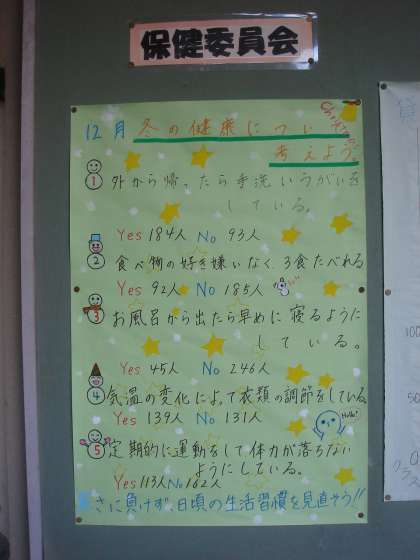 保健委員会
12月 冬の健康につい
考えよう。
① 外から帰ったら手洗いうがいを
している。
Yes 184人 No 93人
② 食べ物の好き嫌いなく、3食たべれる
Yes 92人 No 185人
③ お風呂から出たら早めに寝るように
している。
Yes 45人 No 246人
④ 気温の変化によって衣類の調節をしている。
Yes 139人 No 131人
Hello!
⑤ 定期的に運動をして体力が落ちない
ようにしている。
Yes 113人 No 162人
さに負けず、日頃の生活習慣を見直そう!!
クラス